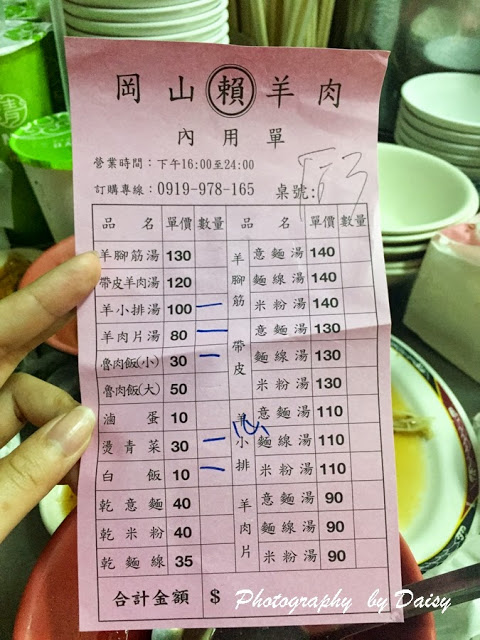 岡山賴羊肉
內用單
營業時間：下午16:00至24:00
訂購專線：0919-978-165 桌號:
品名 單價 數量 品名 單價 數量
羊腳筋湯 130
帶皮羊肉湯 120
羊小排湯 100 一
羊肉片湯 80 一
魯肉飯(小) 30 一
魯肉飯(大) 50
滷蛋 10
燙青菜 30 一
白飯 10 一
乾意麵 40
乾米粉 40
乾麵線 35
羊腳筋 意麵湯 140
麵線湯 140
米粉湯 140
帶皮 意麵湯 130
麵線湯 130
米粉湯 130
羊小排 意麵湯 110
麵線湯 110
米粉湯 110
羊肉片 意麵湯 90
麵線湯 90
米粉湯 90
合計金額 $
Photography by Daisy